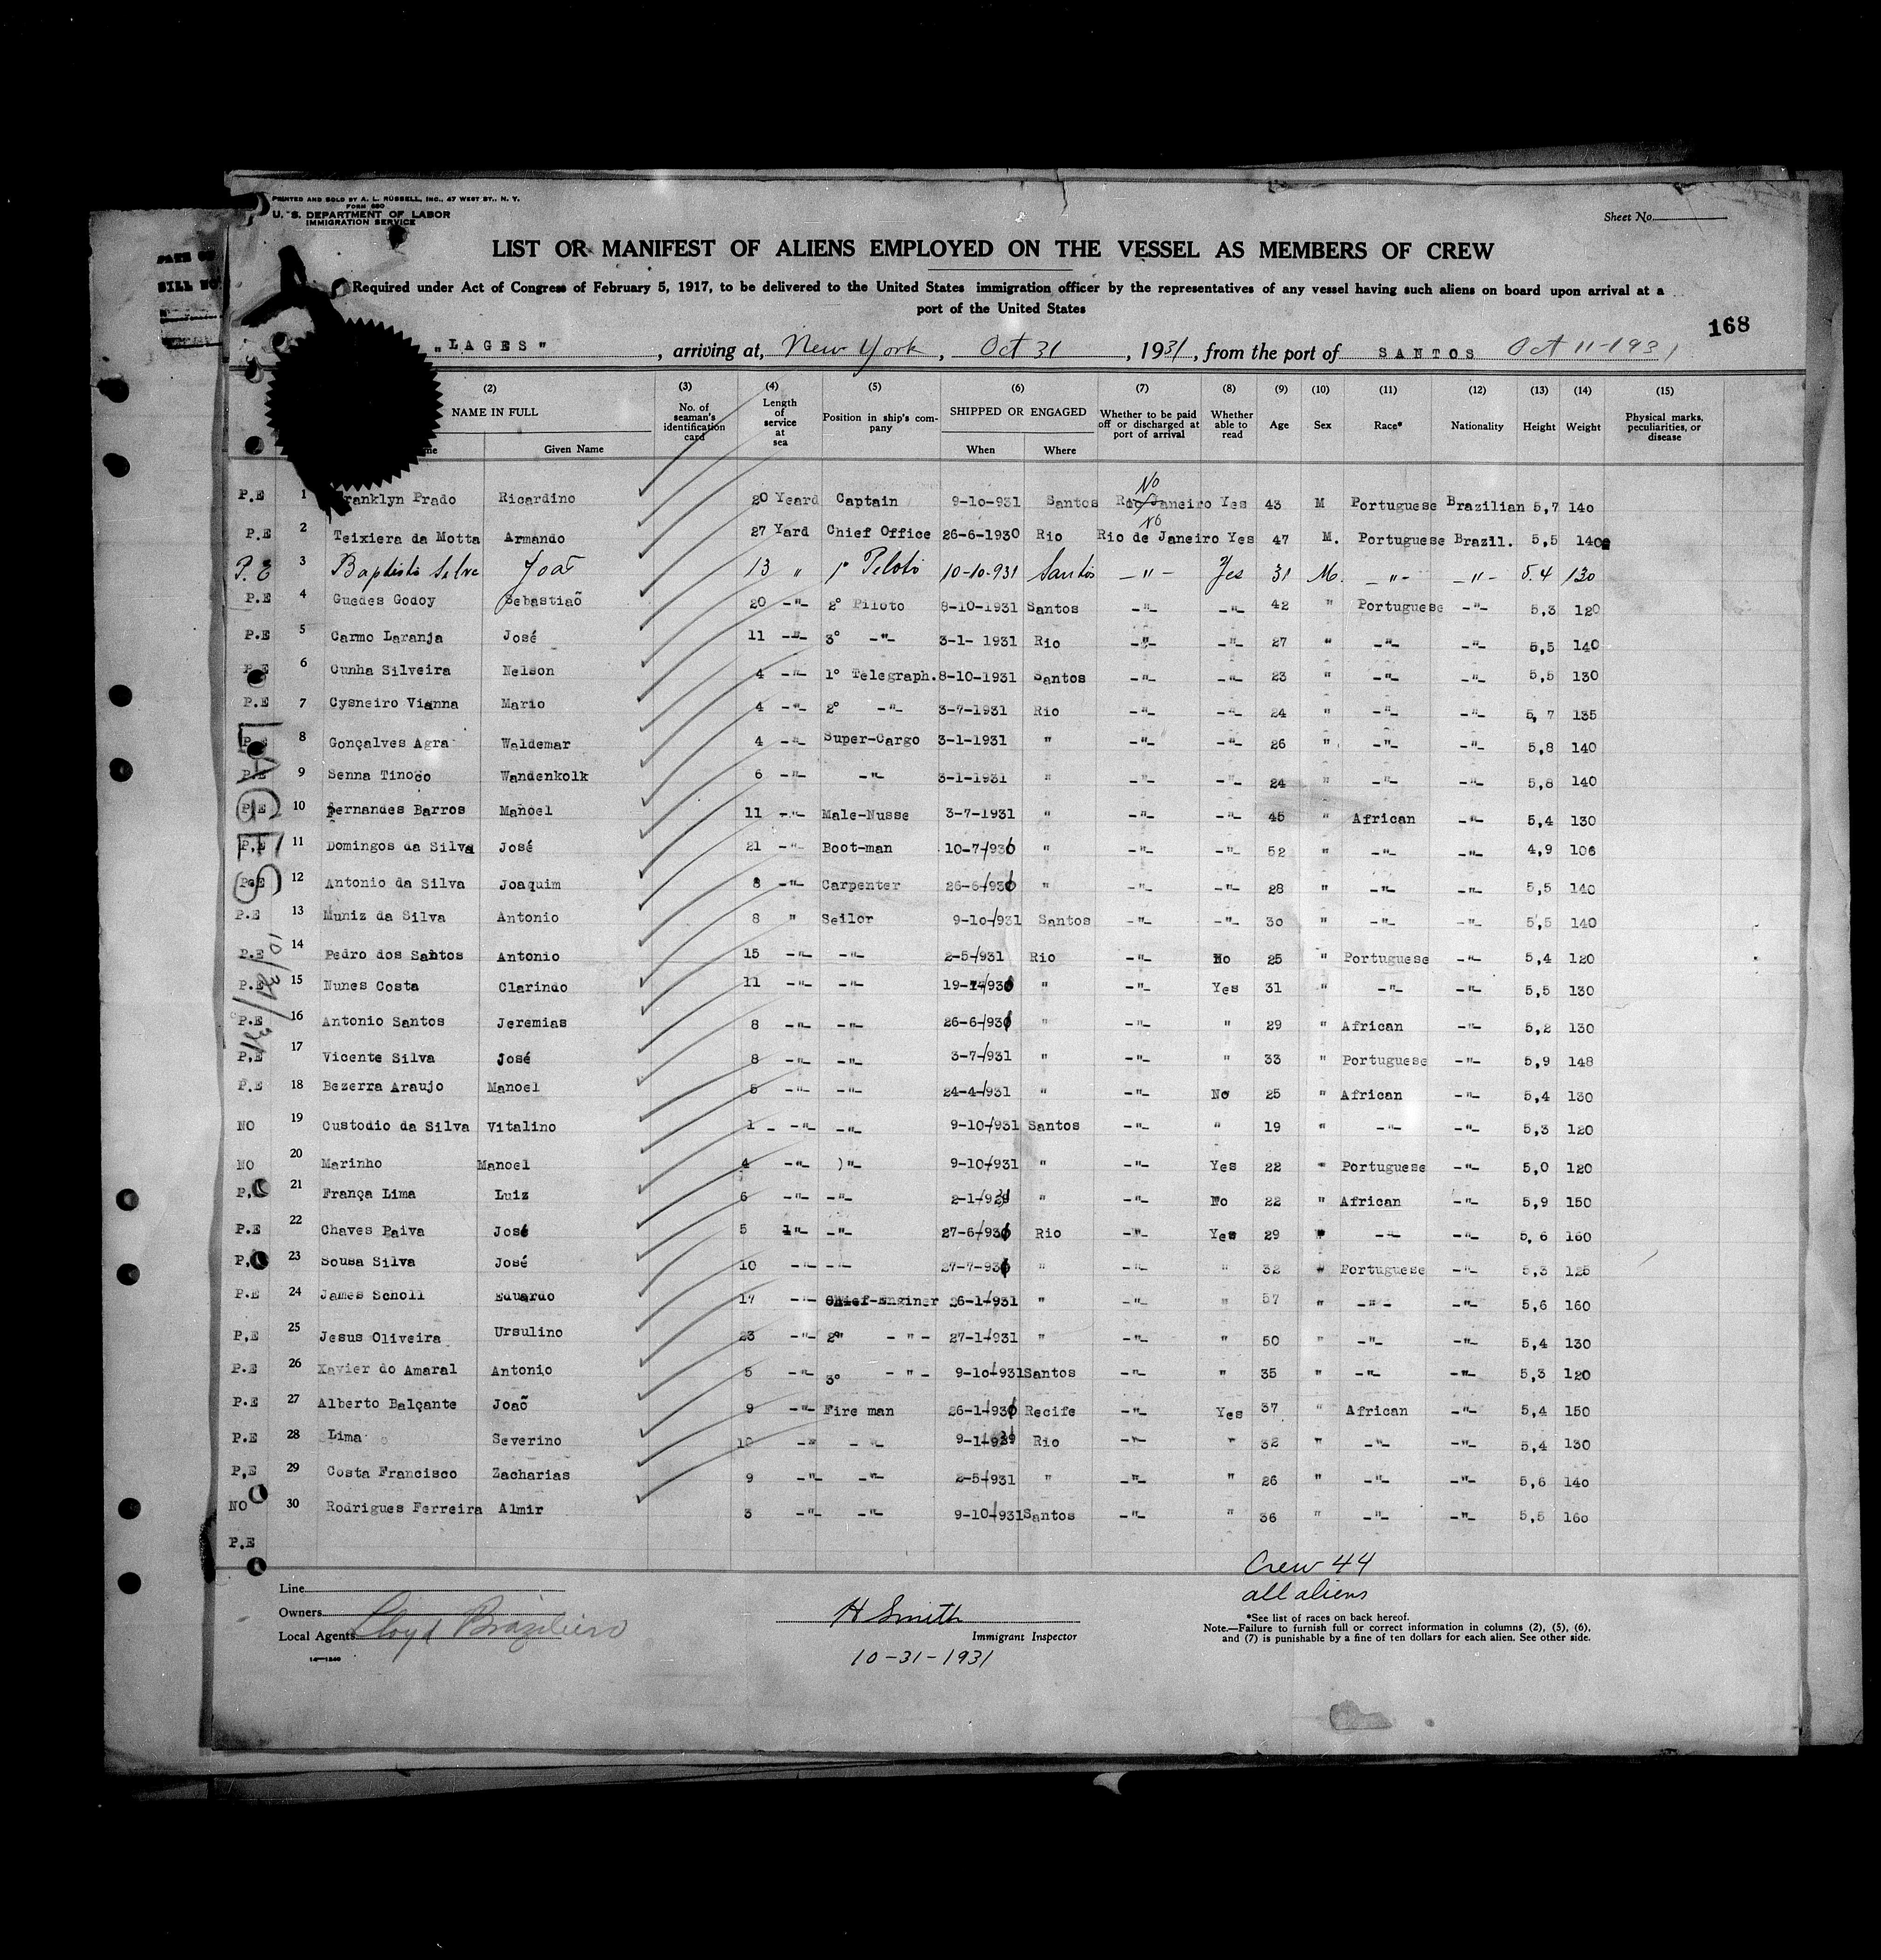 PRINTED AND SOLD BY A. L. RUSSELL, INC., 47 WEST ST., N. Y.
FORM 680
U. S. DEPARTMENT OF LABOR
IMMIGRATION SERVICE
Sheet No.
LIST OR MANIFEST OF ALIENS EMPLOYED ON THE VESSEL AS MEMBERS OF CREW
Required under Act of Congress of February 5, 1917, to be delivered to the United States immigration officer by the representatives of any vessel having such aliens on board upon arrival at a
port of the United States
168
"LAGES", arriving at, New York, Oct 31, 1931, from the port of SANTOS Oct 11-1931
(2) (3) (4) (5) (6) (7) (8) (9) (10) (11) (12) (13) (14) (15)
NAME IN FULL No. of seaman's identification card Length of service at sea Position in ship's company SHIPPED OR ENGAGED Whether to be paid off or discharged at port of arrival Whether able to read Age Sex Race* Nationality Height Weight Physical marks, peculiarities, or disease
Given Name When Where
No
P.E 1 Franklyn Prado Ricardino 20 Yeard Captain 9-10-931 Santos Rio Janeiro Yes 43 M Portuguese Brazilian 5,7 140
No
P.E 2 Teixiera da Motta Armando 27 Yard Chief Office 26-6-1930 Rio Rio de Janeiro Yes 47 M. Portuguese Brazil. 5,5 140
P.E 3 Baptista Silva Joaõ 13 " 1º Piloto 10-10-931 Santos -"- Yes 31 M. -"- -"- 5.4 130
P.E 4 Guedes Godoy Sebastiaõ 20 -"- 2º Piloto 8-10-1931 Santos -"- -"- 42 " Portuguese -"- 5,3 120
P.E 5 Carmo Laranja José 11 -"- 3º -"- 3-1- 1931 Rio -"- -"- 27 " -"- -"- 5,5 140
P.E 6 Cunha Silveira Nelson 4 -"- 1º Telegraph. 8-10-1931 Santos -"- -"- 23 " -"- -"- 5,5 130
P.E 7 Cysneiro Vianna Mario 4 -"- 2º -"- 3-7-1931 Rio -"- -"- 24 " -"- -"- 5, 7 135
P.E 8 Gonçalves Agra Waldemar 4 -"- Super-Cargo 3-1-1931 " -"- -"- 26 " -"- -"- 5,8 140
P.E 9 Senna Tinoco Wandenkolk 6 -"- -"- 3-1-1931 " -"- -"- 24 " -"- -"- 5,8 140
P.E 10 Fernandes Barros Manoel 11 -"- Male-Nusse 3-7-1931 " -"- -"- 45 " African -"- 5,4 130
P.E 11 Domingos da Silva José 21 -"- Boot-man 10-7-930 " -"- -"- 52 " -"- -"- 4,9 106
P.E 12 Antonio da Silva Joaquim 8 -"- Carpenter 26-6-930 " -"- -"- 28 " -"- -"- 5,5 140
P.E 13 Muniz da Silva Antonio 8 " Seilor 9-10-931 Santos -"- -"- 30 " -"- -"- 5,5 140
P.E 14 Pedro dos Santos Antonio 15 -"- -"- 2-5-931 Rio -"- No 25 " Portuguese -"- 5,4 120
P.E 15 Nunes Costa Clarindo 11 -"- -"- 19-7-930 " -"- Yes 31 " -"- -"- 5,5 130
P.E 16 Antonio Santos Jeremias 8 -"- -"- 26-6-930 " -"- " 29 " African -"- 5,2 130
P.E 17 Vicente Silva José 8 -"- -"- 3-7-931 " -"- " 33 " Portuguese -"- 5,9 148
P.E 18 Bezerra Araujo Manoel 5 -"- -"- 24-4-931 " -"- No 25 " African -"- 5,4 130
NO 19 Custodio da Silva Vitalino 1 - -"- -"- 9-10-931 Santos -"- " 19 " -"- -"- 5,3 120
NO 20 Marinho Manoel 4 -"- )"- 9-10-931 " -"- Yes 22 " Portuguese -"- 5,0 120
P. 21 França Lima Luiz 6 -"- -"- 2-1-931 " -"- No 22 " African -"- 5,9 150
P.E 22 Chaves Paiva José 5 -"- -"- 27-6-930 Rio -"- Yes 29 " -"- -"- 5, 6 160
P. 23 Sousa Silva José 10 -"- -"- 27-7-930 " -"- " 32 " Portuguese -"- 5,3 125
P.E 24 James Scholl Eduardo 17 -"- Chief-Enginer 26-1-931 " -"- " 57 " -"- -"- 5,6 160
P.E 25 Jesus Oliveira Ursulino 23 -"- 2º -"- 27-1-931 " -"- " 50 " -"- -"- 5,4 130
P.E 26 Xavier do Amaral Antonio 5 -"- 3º -"- 9-10-931 Santos -"- " 35 " -"- -"- 5,3 120
P.E 27 Alberto Balçante Joaõ 9 -"- Fire man 26-1-930 Recife -"- Yes 37 " African -"- 5,4 150
P.E 28 Lima Severino 10 -"- -"- 9-1-931 Rio -"- " 32 " -"- -"- 5,4 130
P,E 29 Costa Francisco Zacharias 9 -"- -"- 2-5-931 " -"- " 26 " -"- -"- 5,6 140
NO 30 Rodrigues Ferreira Almir 3 -"- -"- 9-10-931 Santos -"- " 36 " -"- -"- 5,5 160
P.E
LAGES
10/31/31
Crew 44
all aliens
Line
Owners
Local Agents Lloyd Brazileiro
H Smith
Immigrant Inspector
10-31-1931
*See list of races on back hereof.
Note.—Failure to furnish full or correct information in columns (2), (5), (6),
and (7) is punishable by a fine of ten dollars for each alien. See other side.